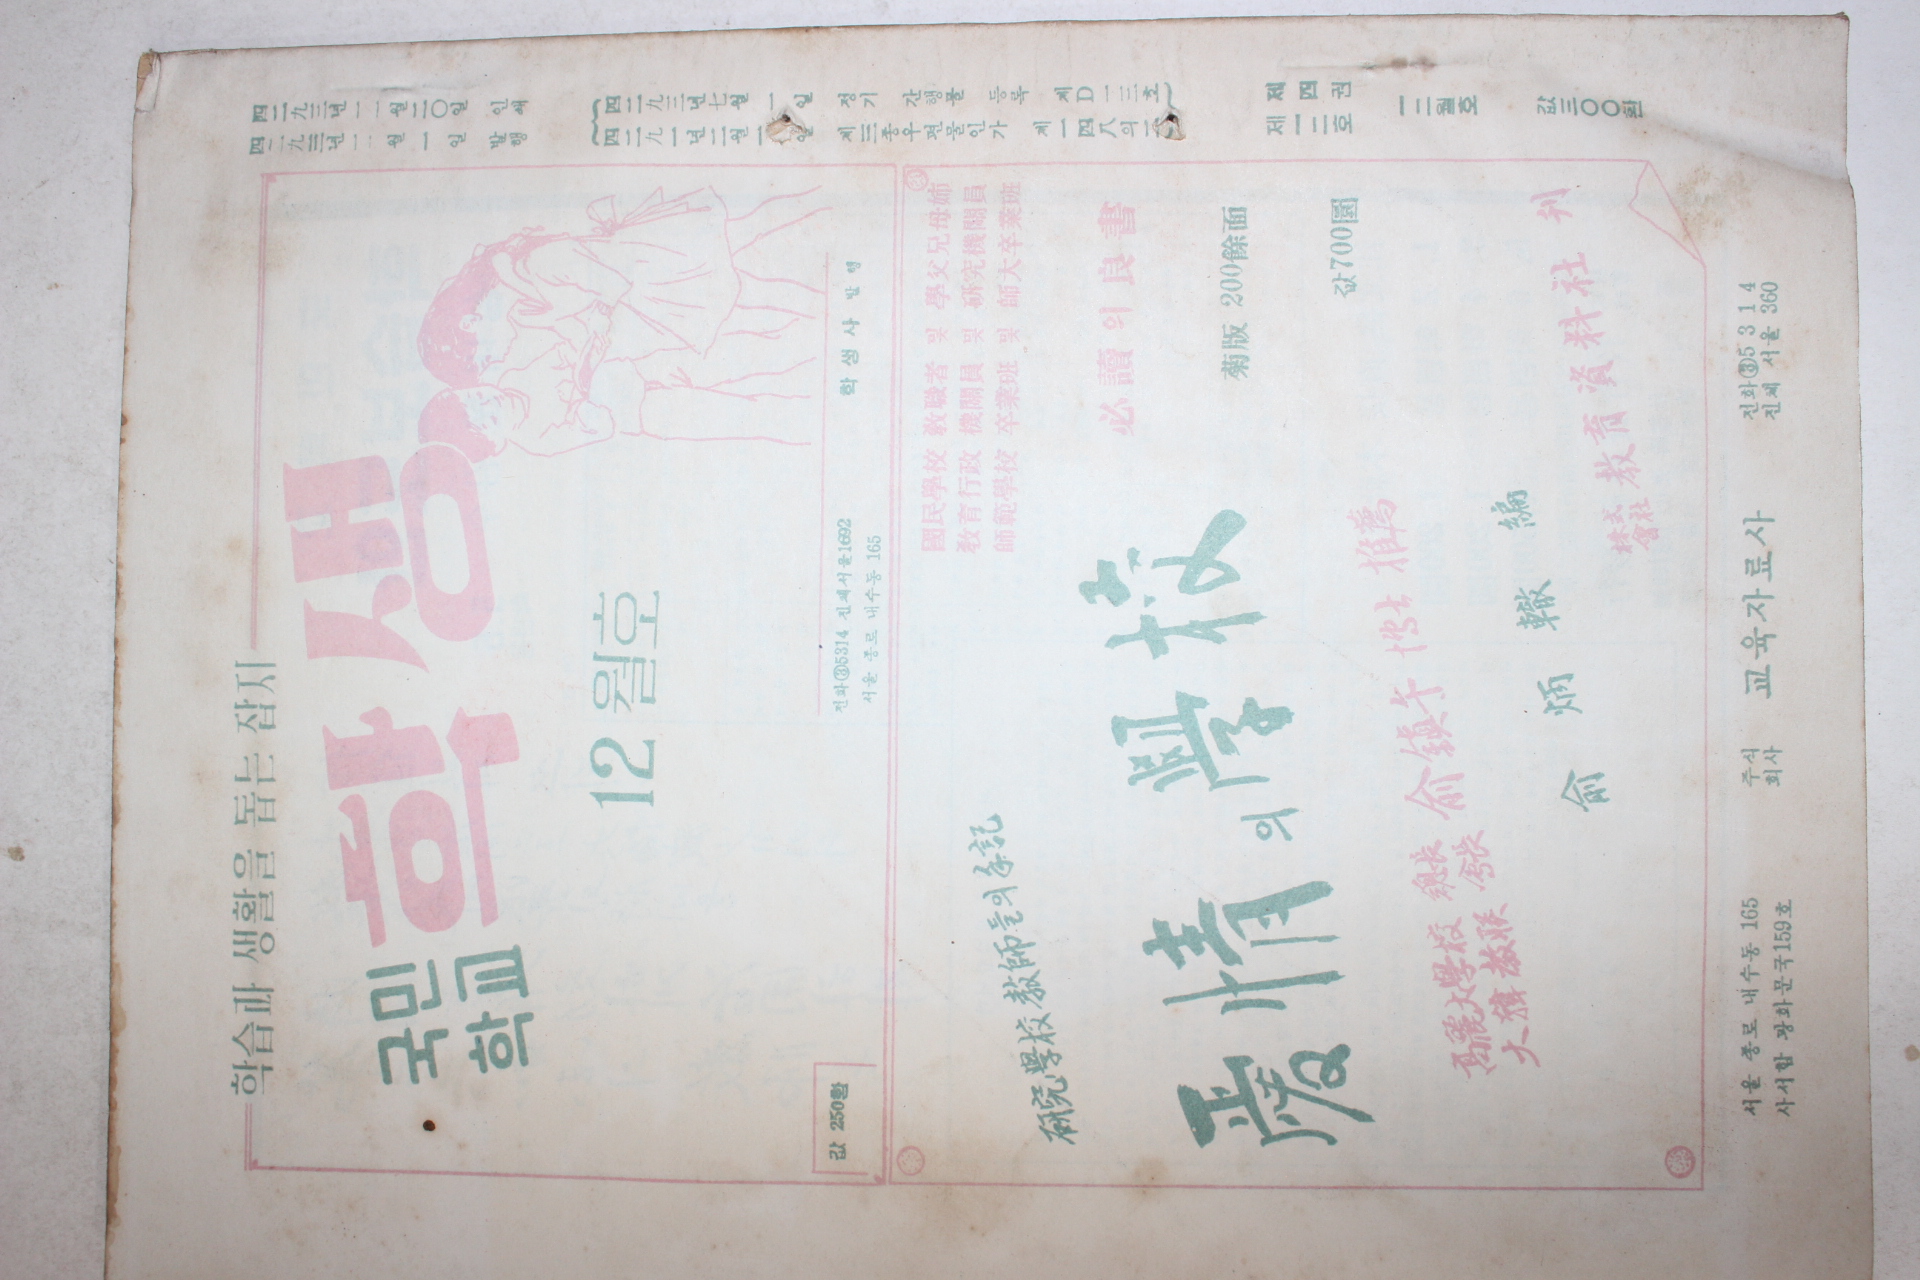 四二九三년 一一월 二〇일 인쇄
四二九三년 一二월 一일 발행
四二九三년 七월 一일 정기 간행물 등록 제D一一三호
제三종우편물인가
제四권
제一二호
一二월호
값三〇〇환
학습과 생활을 돕는 잡지
국민
학교
학생
12월호
값 250환
전화③5314 진체서울1692
서울 종로 내수동 165
학생사 발행
國民學校 敎職者 및 學父兄母姉
敎育行政 機關員 및 硏究機關員
師範學校 卒業班 및 師大卒業班
必讀의 良書
硏究學校敎師들의 手記
愛情의 學校
菊版 200餘面
값700圓
高麗大學校 總長
大韓敎聯 會長
兪鎭午 博士 推薦
兪炳轍 編
株式
會社
敎育資料社 刊
서울 종로 내수동 165
사서함 광화문국159호
주식
회사
교육자료사
전화③5314
진체 서울 360